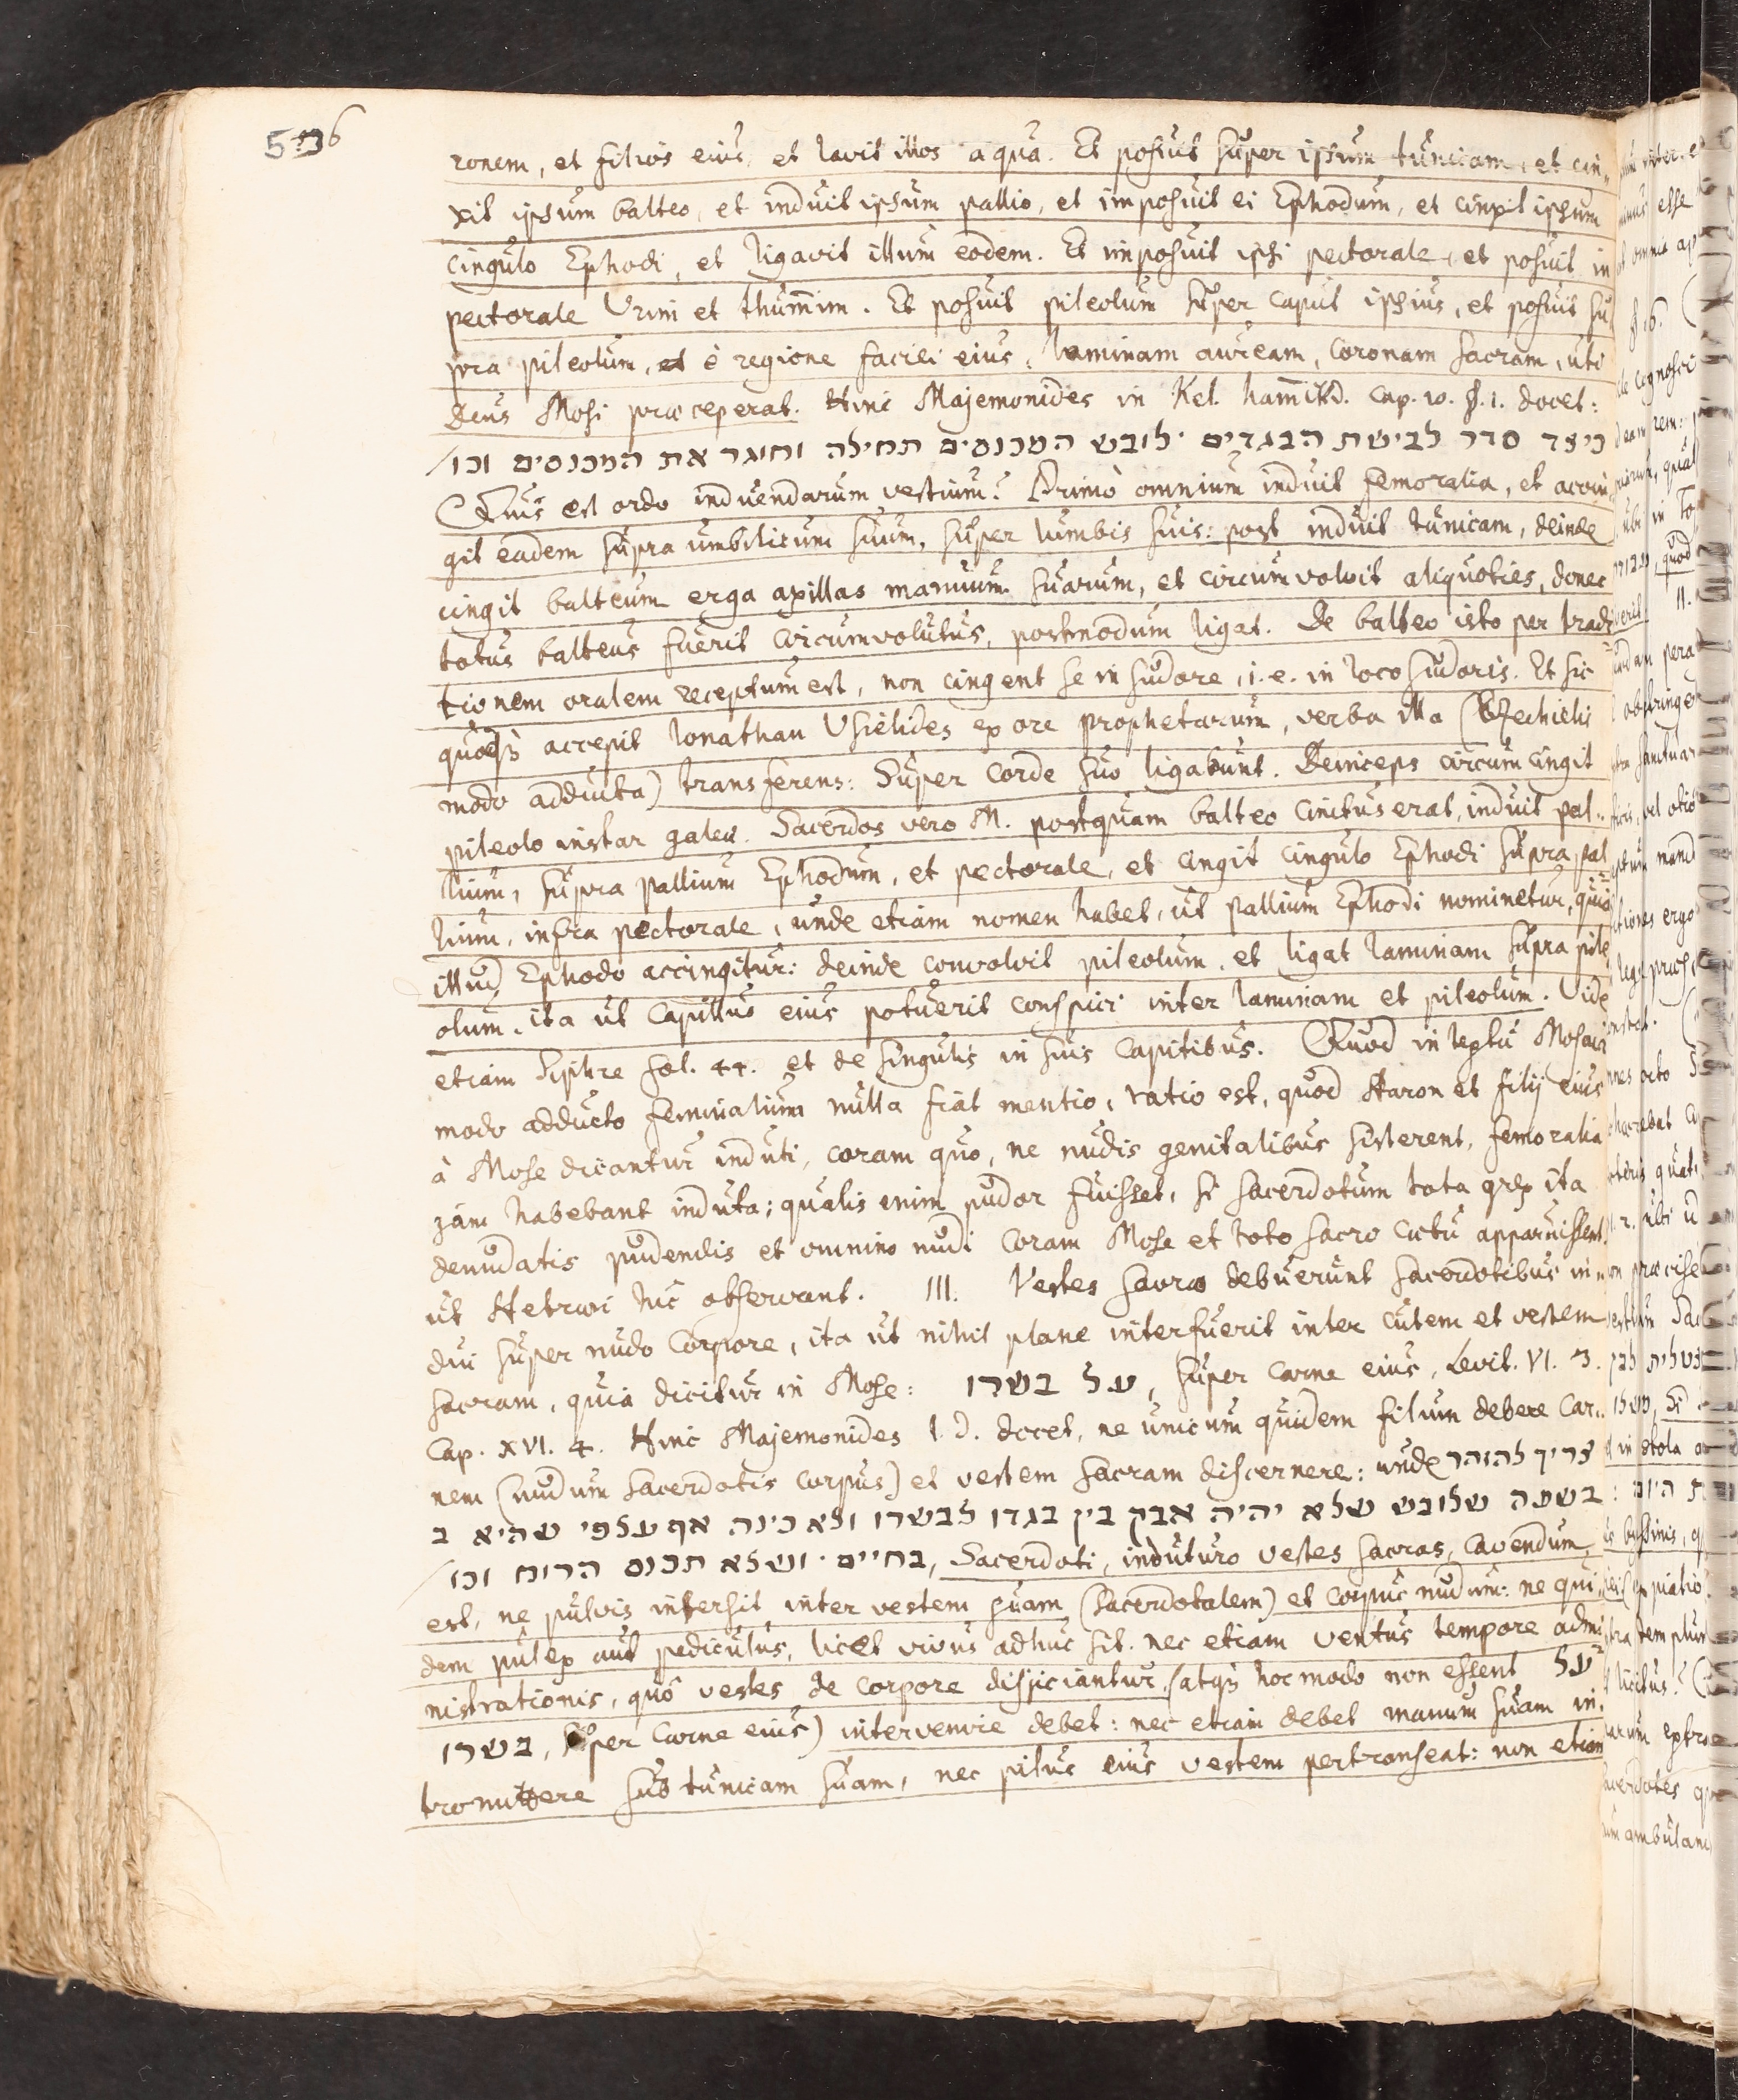 506
ronem, et filios eius, et lavit illos aqua. Et posuit super ipsum tunicam, et cin-
xit ipsum balteo, et induit ipsum pallio, et imposuit ei Ephodum, et cinxit ipsum
cingulo Ephodi, et ligavit illum eodem. Et imposuit ipsi pectorale, et posuit in
pectorale Urim et thum̄im. Et posuit pileolum super caput ipsius, et posuit su
pra pileolum, è regione faciei eius, laminam auream, coronam sacram, uti
Deus Mosi præceperat. Hinc Majemonides in Kel. ham̄ikd. Cap. 10. §. 1. docet:
כיצד סדר לבישת הבגדים ילובש המכנסים תחילה וחוגר את המכנסים וכו/
Quis est ordo induendarum vestium? Primò omnium induit femoralia, et accin
git eadem supra umbilicum suum, super lumbis suis: post induit tunicam, deinde
cingit balteum erga axillas manuum suarum, et circumvolvit aliquoties, donec
totus balteus fuerit circumvolutus, postmodum ligat. De balteo isto per tradi
tionem oralem receptum est, non cingent se in sudore, i. e. in loco sudoris. Et sic
quoqꝫ accepit Jonathan Usielides ex ore prophetarum, verba illa (Ezechielis
modo adducta) transferens: Super corde suo ligabunt. Deinceps circumcingit
pileolo instar galeæ. Sacerdos vero M. postquam balteo cinctus erat, induit pal-
lium, supra pallium Ephodum, et pectorale, et cingit cingulo Ephodi supra pal
lium, infra pectorale, unde etiam nomen habet, ut pallium Ephodi nominetur, quia
illud Ephodo accingitur: deinde convolvit pileolum, et ligat laminam supra pile
olum, ita ut capillus eius potuerit conspici inter laminam et pileolum. Vide
etiam Siphre fol. 44. et de singulis in suis Capitibus. Quod in textu Mosaic
modo adducto feminalium nulla fiat mentio, ratio est, quod Haron et filij eius
à Mose dicantur induti, coram quo, ne nudis genitalibus sisterent, femoralia
jam habebant induta; qualis enim pudor fuisset, si sacerdotum tota grex ita
denudatis pudendis et omnino nudi coram Mose et toto sacro cœtu apparuissent.
ut Hebræi hic observant. III. Vestes sacræ debuerunt sacerdotibus in-
dui super nudo corpore, ita ut nihil plane interfuerit inter cutem et vestem
sacram, quia dicitur in Mose: על בשרו, super carne eius, Levit. VI. 3.
Cap. XVI. 4. Hinc Majemonides l. d. docet, ne unicum quidem filum debere Car-
nem (nudum sacerdotis corpus) et vestem sacram discernere: unde צריך להזהר
בשעה שלובש שלא יהיה אבק בין בגדו לבשרו ולא כינה אף על פי שהיא ב
בחיים ושלא תכנס הרוח וכו/, Sacerdoti, induturo vestes sacras, cavendum
est, ne pulvis intersit inter vestem suam (sacerdotalem) et corpus nudum: ne qui
dem pulex aut pediculus, licet vivus adhuc sit. nec etiam ventus tempore admi
nistrationis, quô vestes de corpore disjiciantur, (atqꝫ hoc modo non essent על
בשרו, super carne eius) intervenire debet: nec etiam debet manum suam in-
tromittere sub tunicam suam, nec pilus eius vestem pertranseat: non etiam